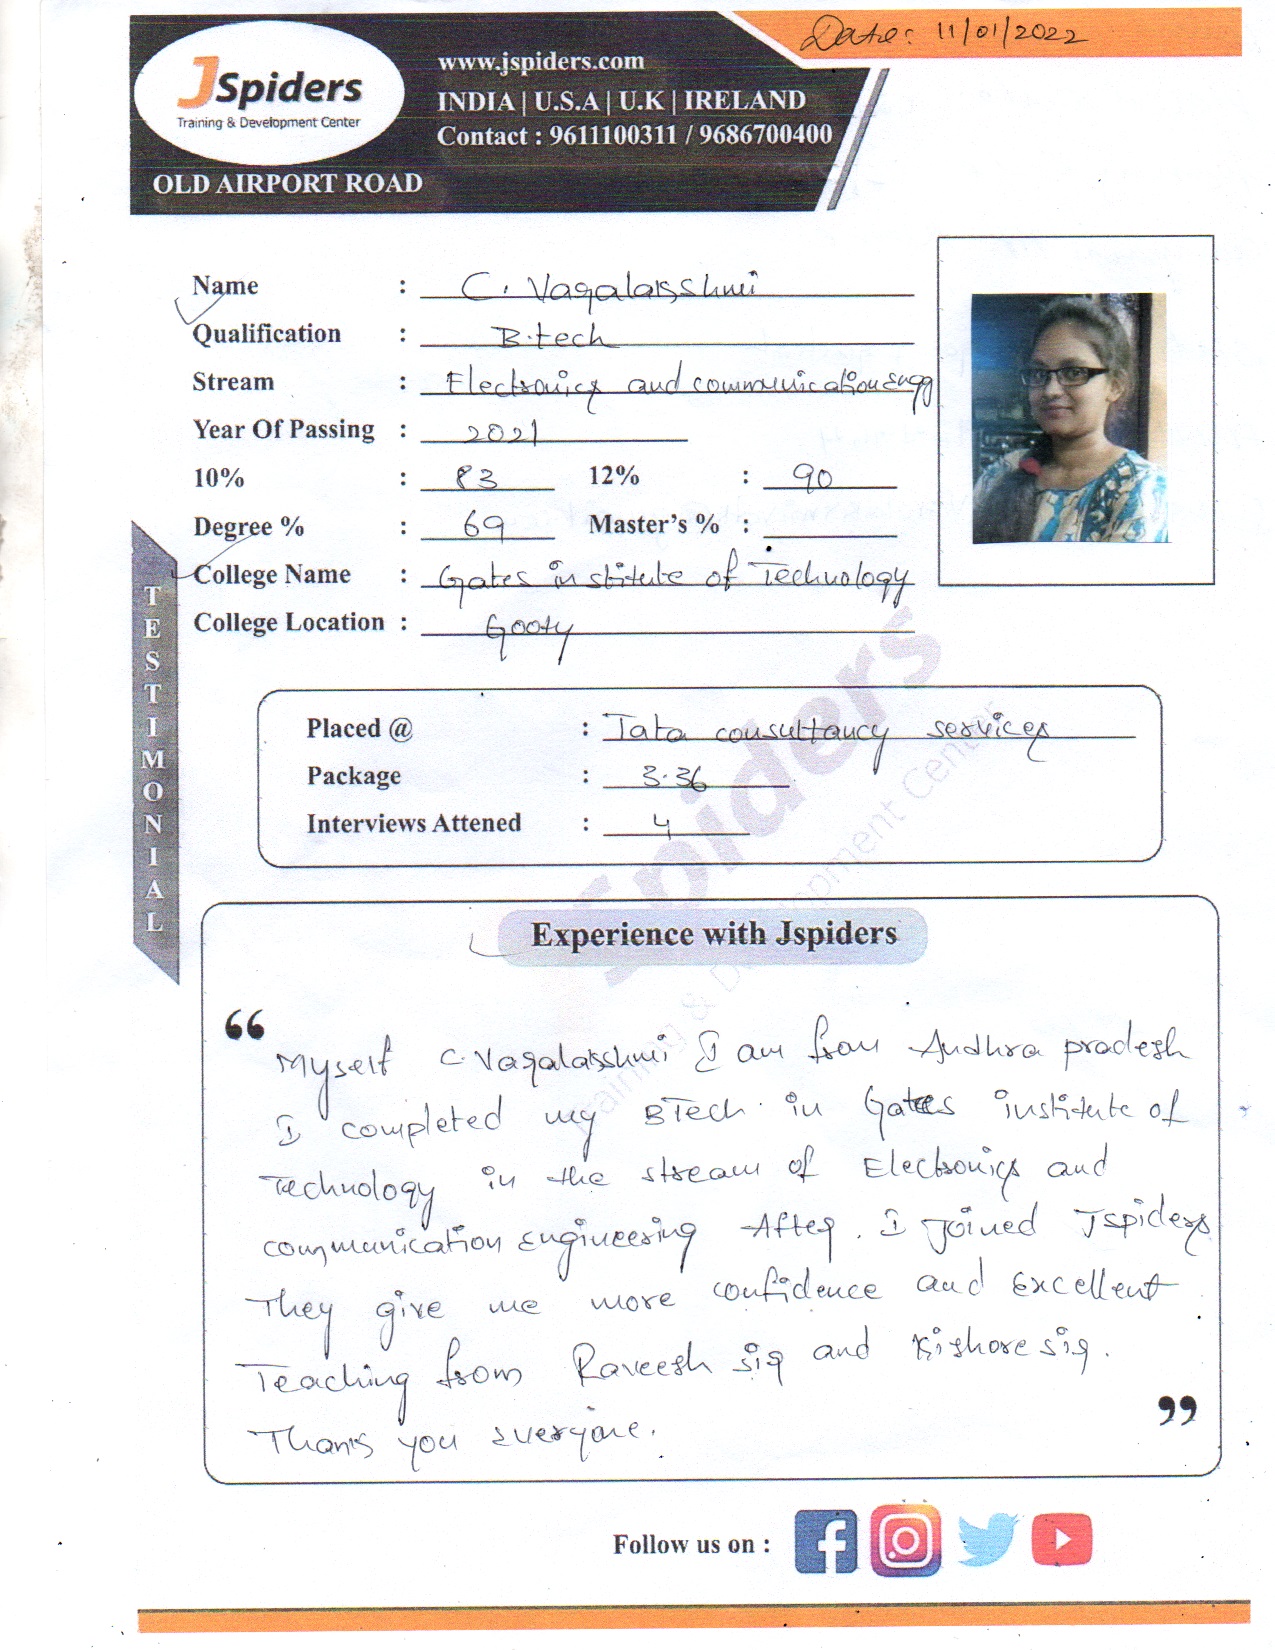 Date: 11/01/2022
JSpiders
Training & Development Center
OLD AIRPORT ROAD
www.jspiders.com
INDIA | U.S.A | U.K | IRELAND
Contact : 9611100311 / 9686700400
Name : C. Varalakshmi
Qualification : B.tech
Stream : Electronics and communication Engg
Year Of Passing : 2021
10% : 83 12% : 90
Degree % : 69 Master's % :
College Name : Gates institute of Technology
College Location : Gooty
TESTIMONIAL
Placed @ : Tata consultancy services
Package : 3.36
Interviews Attened : 4
Experience with Jspiders
“ Myself C. Varalakshmi I am from Andhra pradesh
I completed my BTech in Gates institute of
Technology in the stream of Electronics and
communication Engineering After. I joined Jspiders
They give me more confidence and Excellent
Teaching from Raveesh sir and Kishore sir.
Thanks you Everyone. ”
Spiders
Training & Development Center
Follow us on :